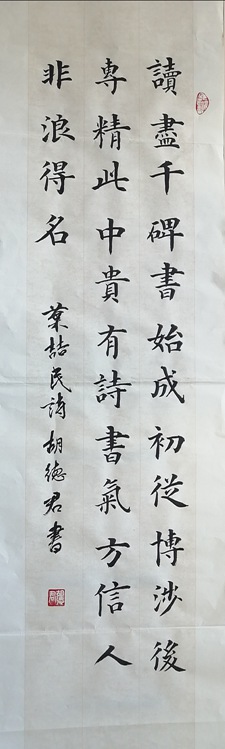 讀盡千碑書始成初從博涉後
專精此中貴有詩書氣方信人
非浪得名
葉喆民詩胡德君書